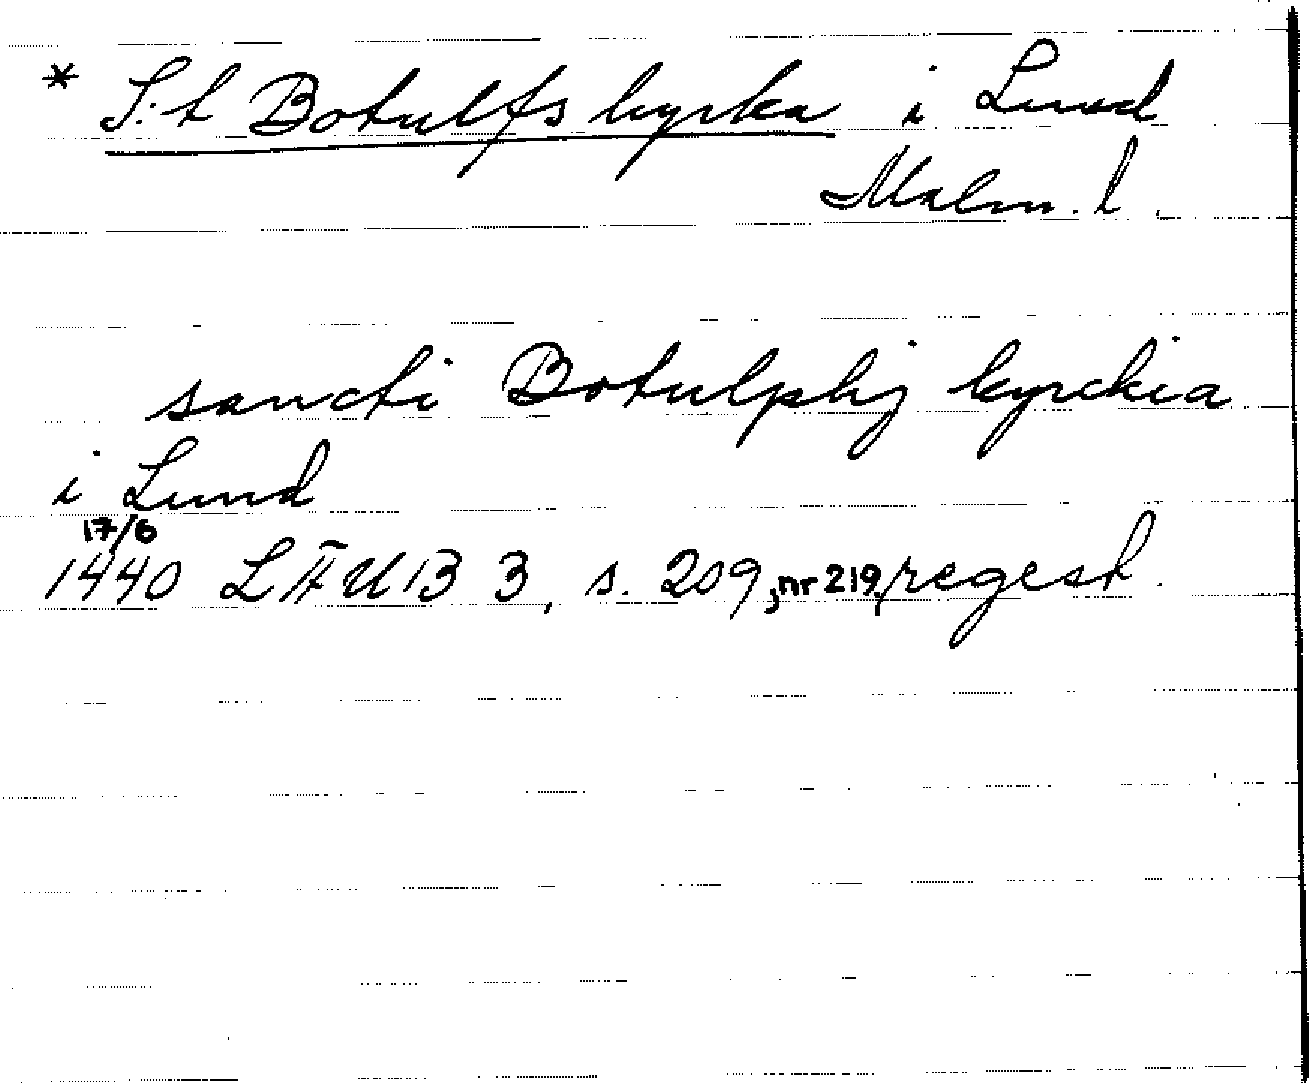 * S:t Botulfs kyrka i Lund
Malm. l.
sancti Botulphj kyrckia
i Lund
17/6
1440 LÄUB 3, s. 209, nr 219, regest.